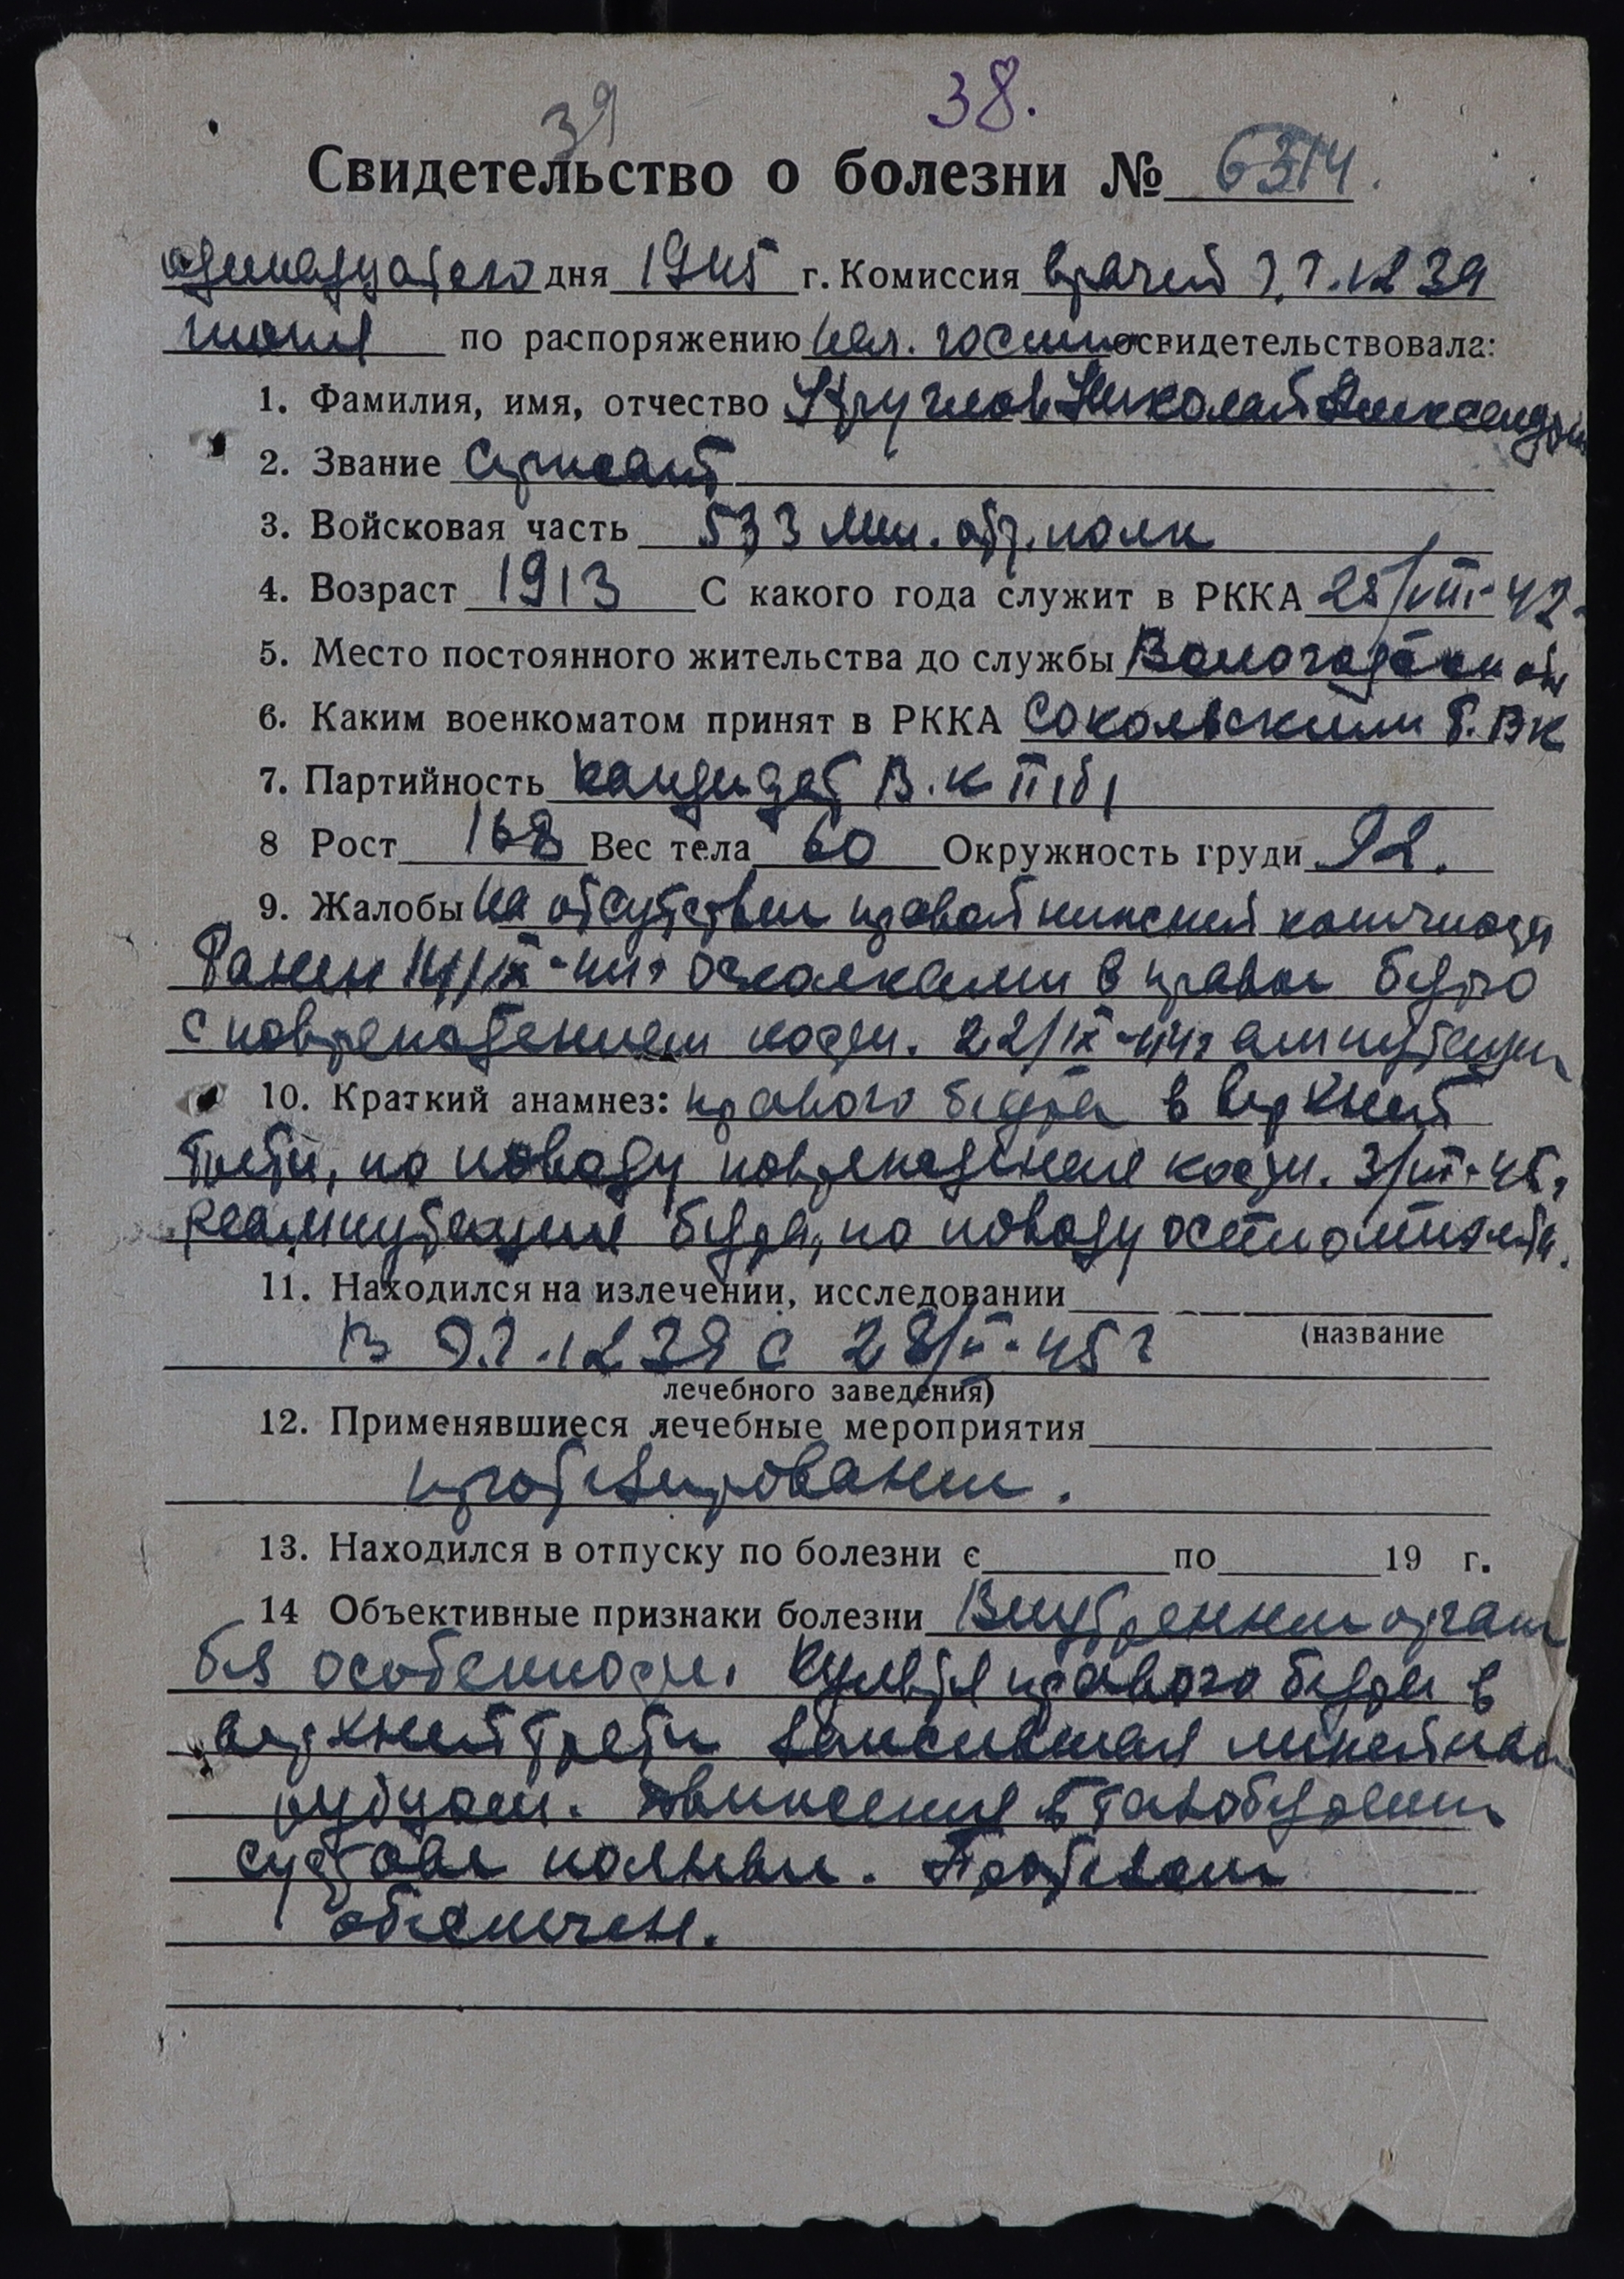 39 38.
Свидетельство о болезни № 6314.
одинадцатого дня 1945 г. Комиссия врачей Э.Г. 1239
июня по распоряжению нач. госпит освидетельствовала:
1. Фамилия, имя, отчество Круглов Николай Александр
2. Звание Сержант
3. Войсковая часть 533 мин. отр. полк
4. Возраст 1913 С какого года служит в РККА 25/VIII-42
5. Место постоянного жительства до службы Вологодской
6. Каким военкоматом принят в РККА Сокольским Р.ВК
7. Партийность кандидат В.КП(б)
8 Рост 168 Вес тела 60 Окружность груди 92.
9. Жалобы на отсутствие правой нижней конечности
Ранен 14/IX-44г осколками в правое бедро
с повреждением кости. 22/IX-44г ампутация
10. Краткий анамнез: правого бедра в верхней
трети, по поводу повреждения кости. 3/III-45г
реампутация бедра, по поводу остеомиэлита.
11. Находился на излечении, исследовании
(название
В Э.Г. 1239 с 28/II-45г
лечебного заведения)
12. Применявшиеся лечебные мероприятия
протезирование.
13. Находился в отпуску по болезни с по 19 г.
14 Объективные признаки болезни Внутренние орган
без особенности. Культя правого бедра в
верхней трети зажившая линейным
рубцом. Движения в тазобедренном
суставе полные. Протезом
обеспечен.